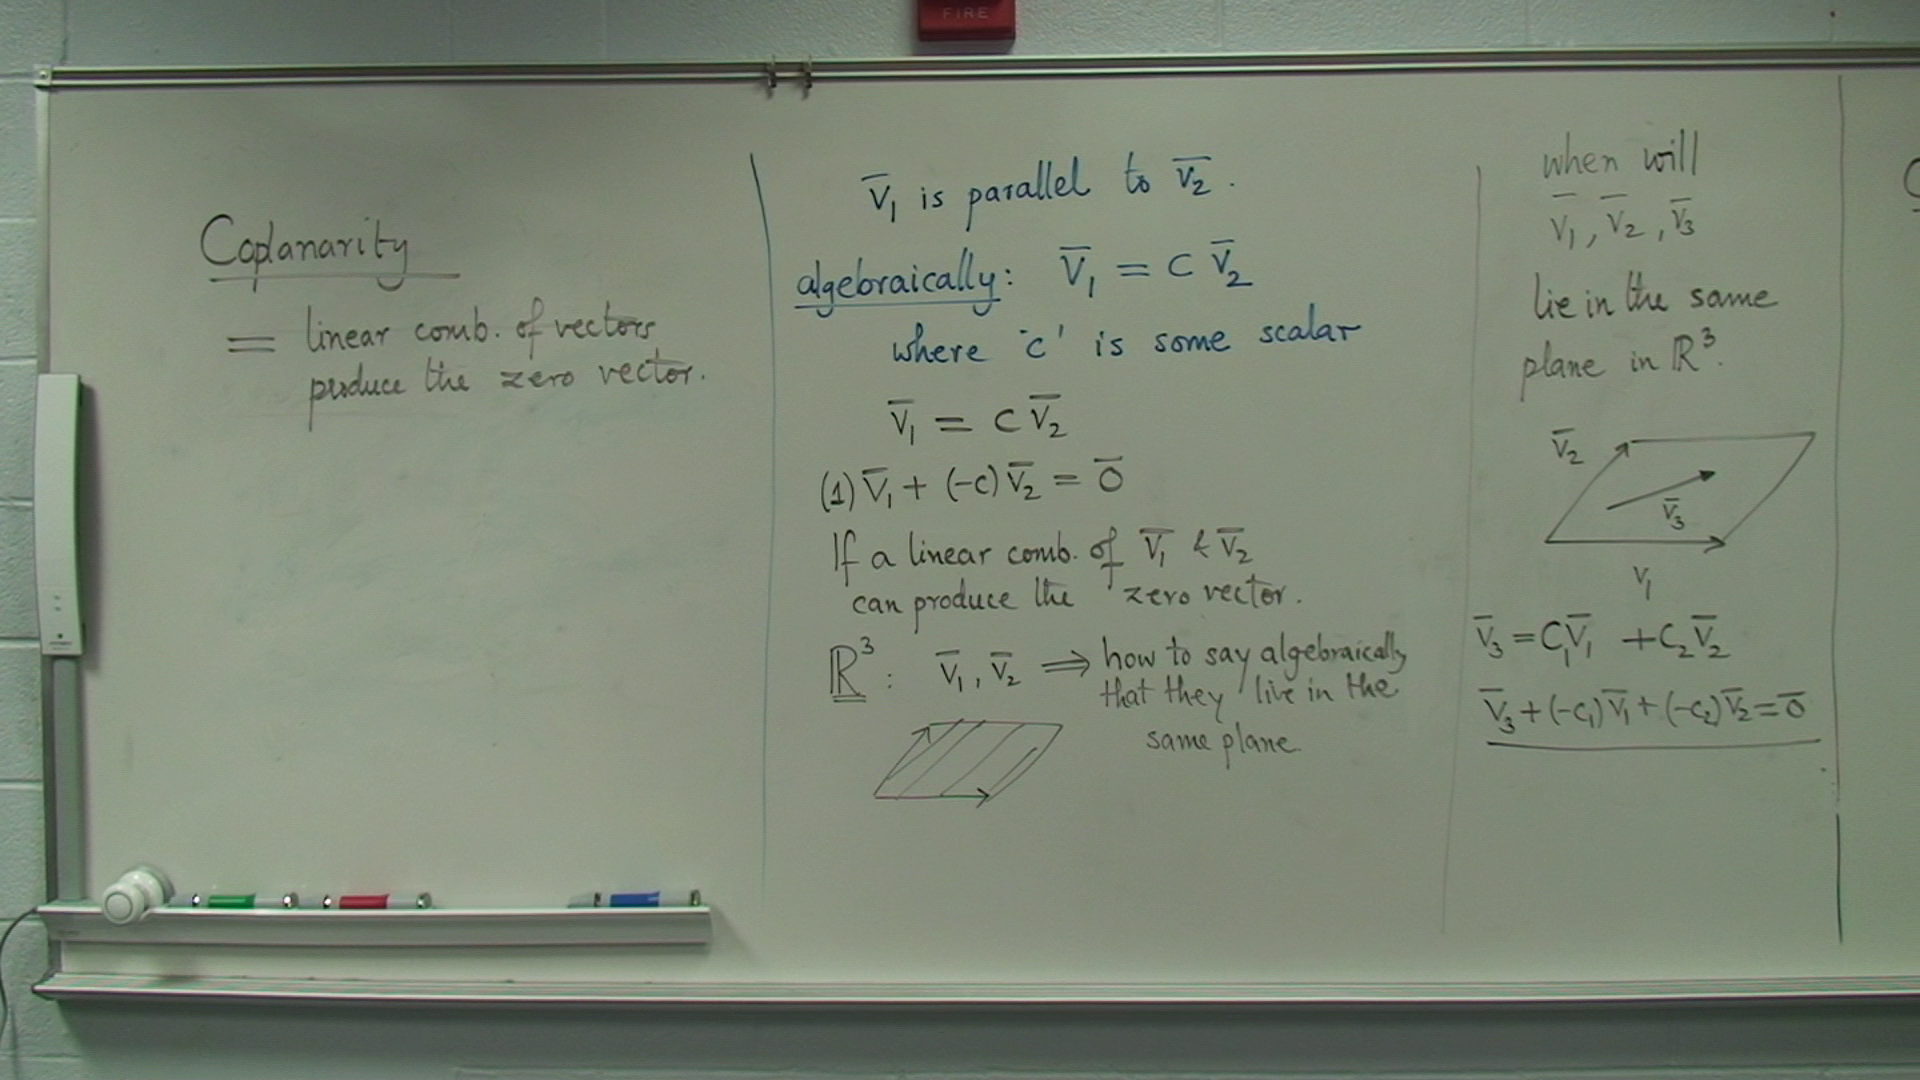 FIRE
Coplanarity
= linear comb. of vectors
produce the zero vector.
V̅₁ is parallel to V̅₂.
algebraically: V̅₁ = C V̅₂
where 'c' is some scalar
V̅₁ = C V̅₂
(1) V̅₁ + (-c) V̅₂ = 0̅
If a linear comb. of V̅₁ & V̅₂
can produce the zero vector.
ℝ³: V̅₁, V̅₂ ⟹ how to say algebraically
that they live in the
same plane.
when will
V̅₁, V̅₂, V̅₃
lie in the same
plane in ℝ³.
V̅₂
V̅₃
V₁
V̅₃ = C₁V̅₁ + C₂V̅₂
V̅₃ + (-c₁)V̅₁ + (-c₂)V̅₂ = 0̅